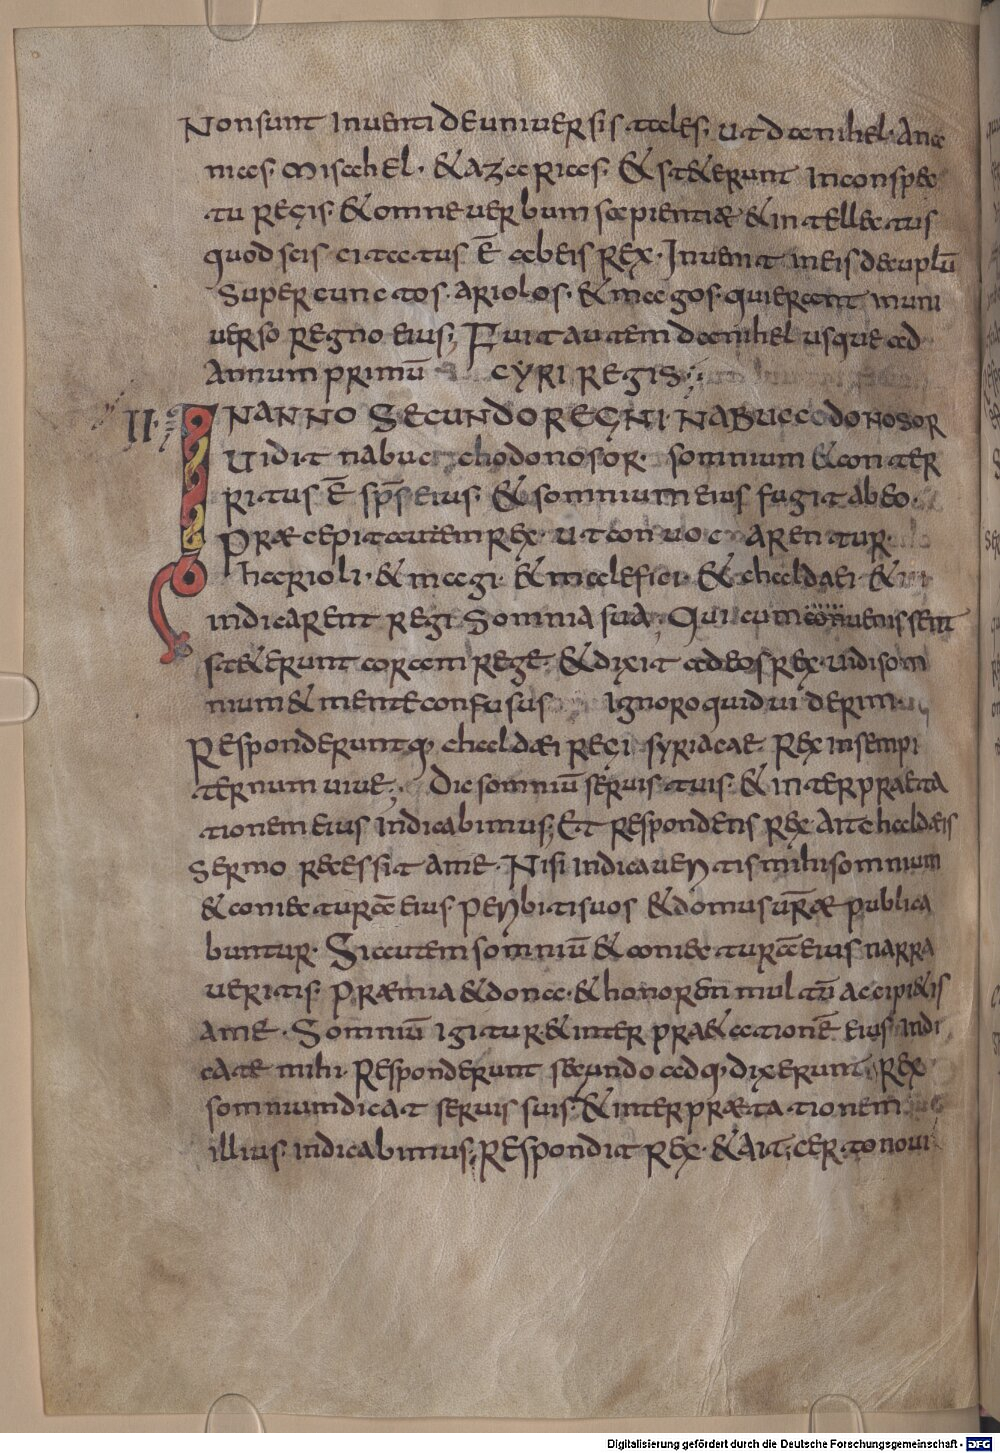 Non sunt inventi de universis tales; ut danihel· Ana
nias· Misahel· & azarias· & steterunt in conspec
tu regis· & omne verbum sapientiae & intellectus
quod scis citatus ē ab eis rex· Invenit in eis decuplū
super cunctos· ariolos· & magos· qui erant in uni
verso regno eius; Fuit autem danihel usque ad
Annum primū CYRI REGIS;
II· IN ANNO SECUNDO REGNI· NABUCCODONOSOR
Vidit nabuchodonosor· somnium & conter
ritus ē sp̄s eius· & somnium eius fugit ab eo·
Praecepit autem rex· ut convocarentur·
harioli· & magi· & malefici· & chaldaei· &
indicarent regi somnia sua; Qui cum convenissent
steterunt coram rege· & dixit ad eos rex· vidi som
nium & mente confusus ignoro quid viderim·
Responderuntq; chaldaei regi syriacae· Rex in sempi
ternum vive; Dic somniū servis tuis· & interpraeta
tionem eius indicabimus; Et respondens rex· Ait chaldaeis
Sermo recessit a me· Nisi indicaveritis mihi somnium
& coniecturā eius· peribitis vos & domus vr̄ae publica
buntur· Si autem somniū & coniecturā eius narra
veritis· praemia & dona· & honorem multū accipietis
a me· Somniū igitur & interpraetationē eius indi
cate mihi· Responderunt secundo adq; dixerunt· Rex
somnium dicat servis suis· & interpraetationem
illius indicabimus; Respondit rex· & Ait; certo novi
Digitalisierung gefördert durch die Deutsche Forschungsgemeinschaft - DFG